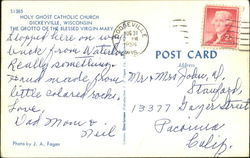 51385
HOLY GHOST CATHOLIC CHURCH
DICKEYVILLE, WISCONSIN
THE GROTTO OF THE BLESSED VIRGIN MARY
Stopped here on way
back from Waterloo
Really something.
Hand made from
little colored rocks.
Love,
Dad Mom &
Neil
Photo by J. A. Fagan
POST CARD
Address
Mr & Mrs John W.
13377 Street
Pacoima
Calif.